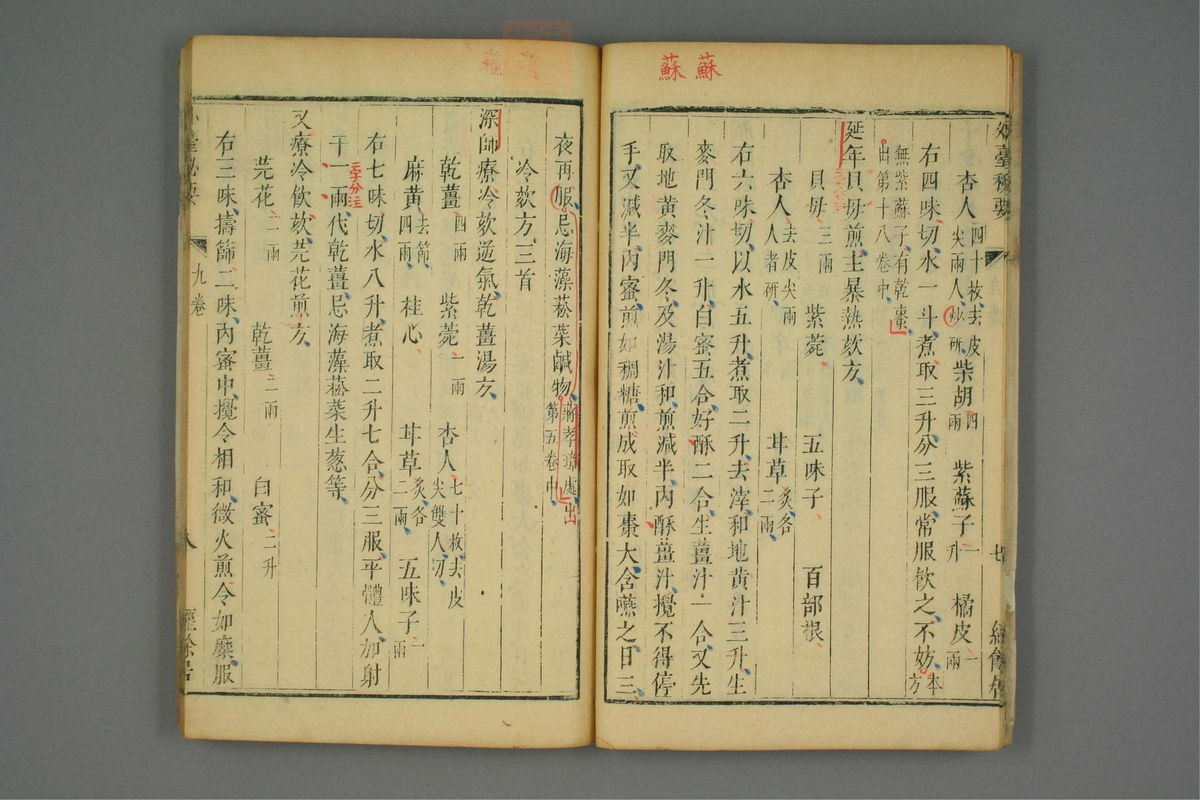 蘇
蘇
外臺秘要
七
經餘居
杏人四十枚去皮尖兩人炒研 柴胡四兩 紫蘇子一升 橘皮一兩
右四味切水一斗煮取三升分三服常服飲之不妨本方
無紫蘇子有乾棗出第十八卷中
延年貝母煎主暴熱欬方
貝母三兩 紫菀 五味子 百部根
杏人去皮尖兩人者研 甘草炙各二兩
右六味切以水五升煮取二升去滓和地黃汁三升生
麥門冬汁一升白蜜五合好酥二合生薑汁一合又先
取地黃麥門冬及湯汁和煎減半內酥薑汁攪不得停
手又減半內蜜煎如稠糖煎成取如棗大含嚥之日三
夜再服忌海藻菘菜鹹物蔣孝璋處出第五卷中
冷欬方三首
深師療冷欬逆氣乾薑湯方
乾薑四兩 紫菀一兩 杏人七十枚去皮尖雙人切
麻黃去節四兩 桂心 甘草炙各二兩 五味子一兩
右七味切水八升煮取二升七合分三服平體人加射
干一兩代乾薑忌海藻菘菜生葱等
三字分注
又療冷飲欬芫花煎方
芫花二兩 乾薑二兩 白蜜二升
右三味擣篩二味內蜜中攪令相和微火煎令如糜服
外臺秘要
九卷
八
經餘居